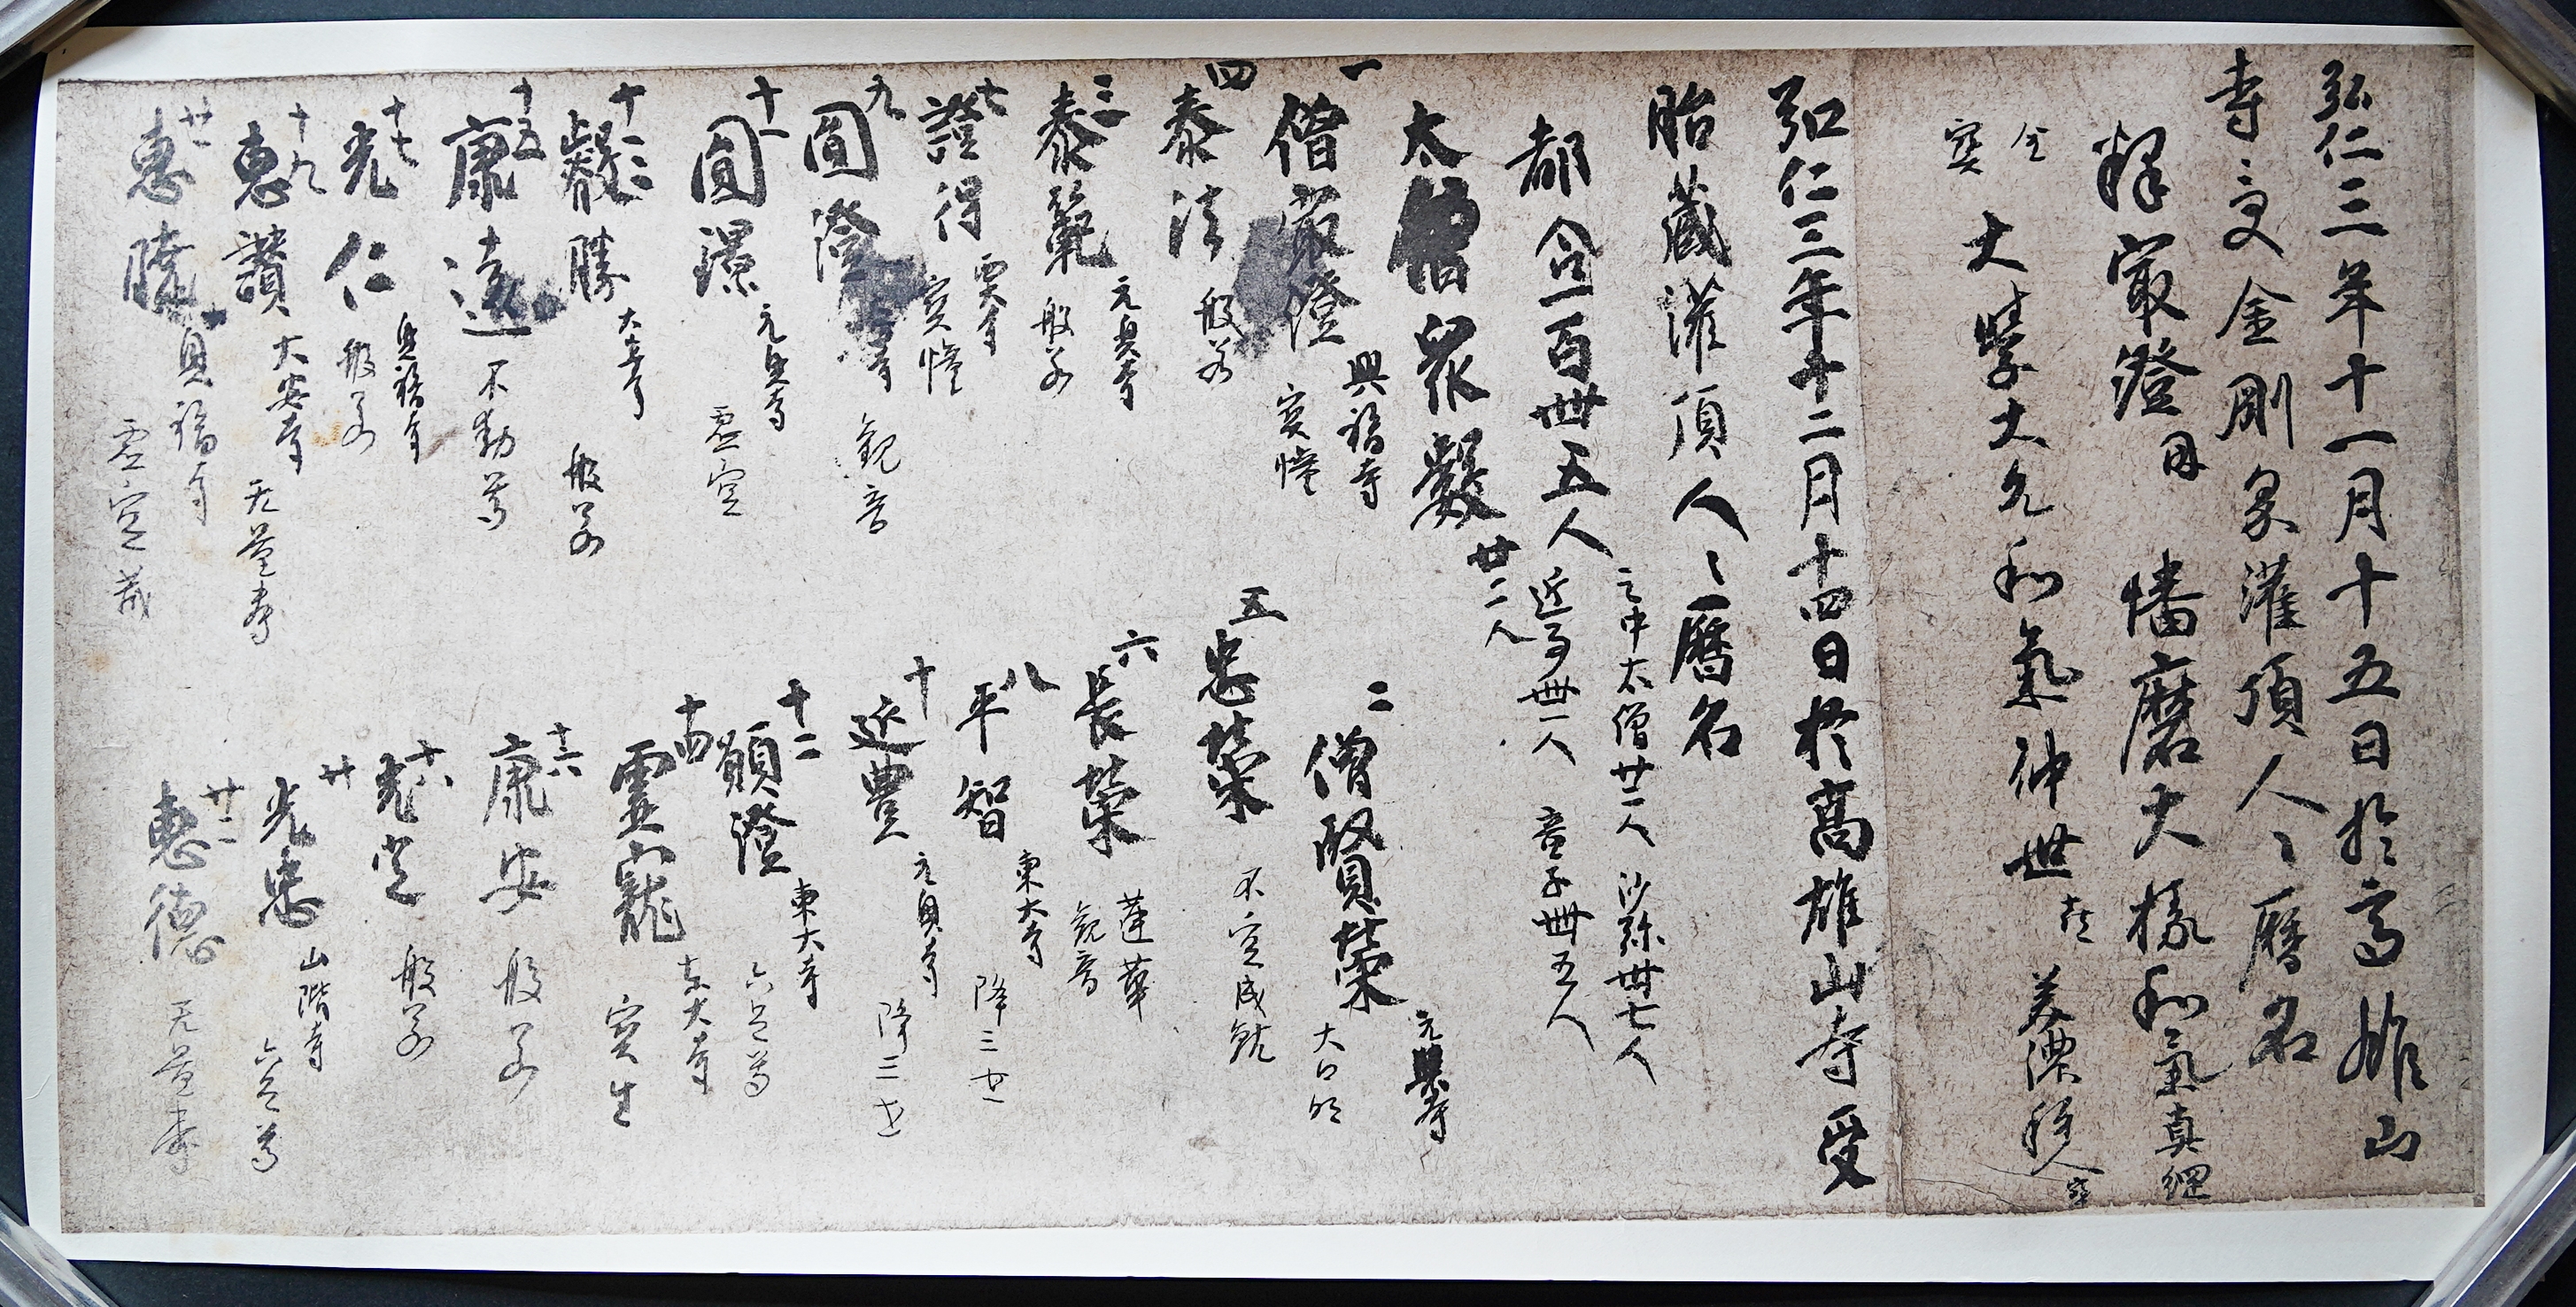 弘仁三年十一月十五日於高雄山
寺々受金剛界灌頂人々曆名
釋寂澄因 幡磨大掾和氣真綱
金
寶
大學大允和氣仲世 喜 美濃種人 寶
弘仁三年十二月十四日於高雄山寺受
胎藏灌頂人々曆名
都合一百卌五人
之中太僧廿二人 沙弥卌七人
近事卌一人 童子卌五人
太僧衆數 廿二人
一 僧寂澄 興福寺 寶幢
二 僧賢榮 元興寺 大日
三 泰範 元興寺 般若
四 泰法 般若
五 忠榮 不空成就
六 長榮 蓮華 觀音
七 證得 寶幢
八 平智 東大寺 降三世
九 圓澄 觀音
十 延豊 元興寺 降三世
十一 圓璟 元興寺 虛空
十二 願澄 東大寺 六足尊
十三 叡勝 大安寺 般若
十四 靈寵 東大寺 寶生
十五 康遠 不動尊
十六 康安 般若
十七 光仁 興福寺 般若
十八 光定 般若
十九 惠讚 大安寺 无量壽
廿 光忠 山階寺 六足尊
廿一 惠曉 興福寺 虛空藏
廿二 惠德 无量壽